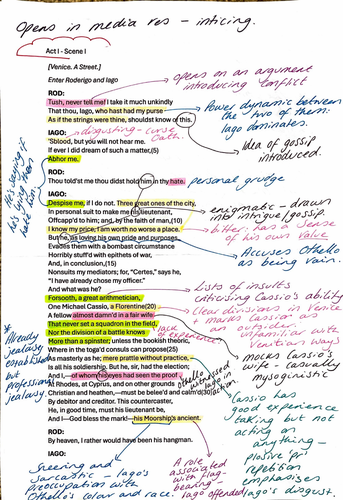 Opens in media res - inticing.
Act I - Scene I
[Venice. A Street.]
opens on an argument
introducing conflict
Enter Roderigo and Iago
ROD:
Tush, never tell me! I take it much unkindly
That thou, Iago, who hast had my purse
As if the strings were thine, shouldst know of this.
Power dynamic between
the two of them.
Iago dominates.
IAGO:
disgusting - curse
Oath.
'Sblood, but you will not hear me.
If ever I did dream of such a matter,(5)
Abhor me.
Idea of gossip
introduced.
ROD:
Thou told'st me thou didst hold him in thy hate.
personal grudge
IAGO:
Despise me, if I do not. Three great ones of the city,
In personal suit to make me his lieutenant,
Off-capp'd to him; and, by the faith of man,(10)
I know my price; I am worth no worse a place.
But he, as loving his own pride and purposes,
Evades them with a bombast circumstance
Horribly stuff'd with epithets of war,
And, in conclusion,(15)
Nonsuits my mediators; for, "Certes," says he,
"I have already chose my officer."
And what was he?
Forsooth, a great arithmetician,
One Michael Cassio, a Florentine(20)
A fellow almost damn'd in a fair wife;
That never set a squadron in the field,
Nor the division of a battle knows
More than a spinster; unless the bookish theoric,
Where in the toga'd consuls can propose(25)
As masterly as he; mere prattle without practice,
Is all his soldiership. But he, sir, had the election;
And I,—of whom his eyes had seen the proof
At Rhodes, at Cyprus, and on other grounds
Christian and heathen,—must be belee'd and calm'd(30)
By debitor and creditor. This countercaster,
He, in good time, must his lieutenant be,
And I—God bless the mark!—his Moorship's ancient.
ROD:
By heaven, I rather would have been his hangman.
enigmatic - drawn
into intrigue/gossip.
bitter: has a sense
of his own value
Accuses Othello
as being vain.
Lists of insults
criticising Cassio's ability
Clear divisions in Venice
+ marks Cassio as
an outsider,
unfamiliar with
Venetian ways
lack of
experience
mocks Cassio's
wife - casually
mysoginistic
Othello witnessed
Iago in
action
Cassio has
good experience
talking but
not acting
on
anything -
plosive 'pr'
repetition
emphasises
Iago's disgust.
* Already
jealousy
established
but
professional
jealousy.
Sneering and
sarcastic - Iago's
preoccupation with
Othello's colour and race.
A role
associated
with flag-
bearing -
Iago offended